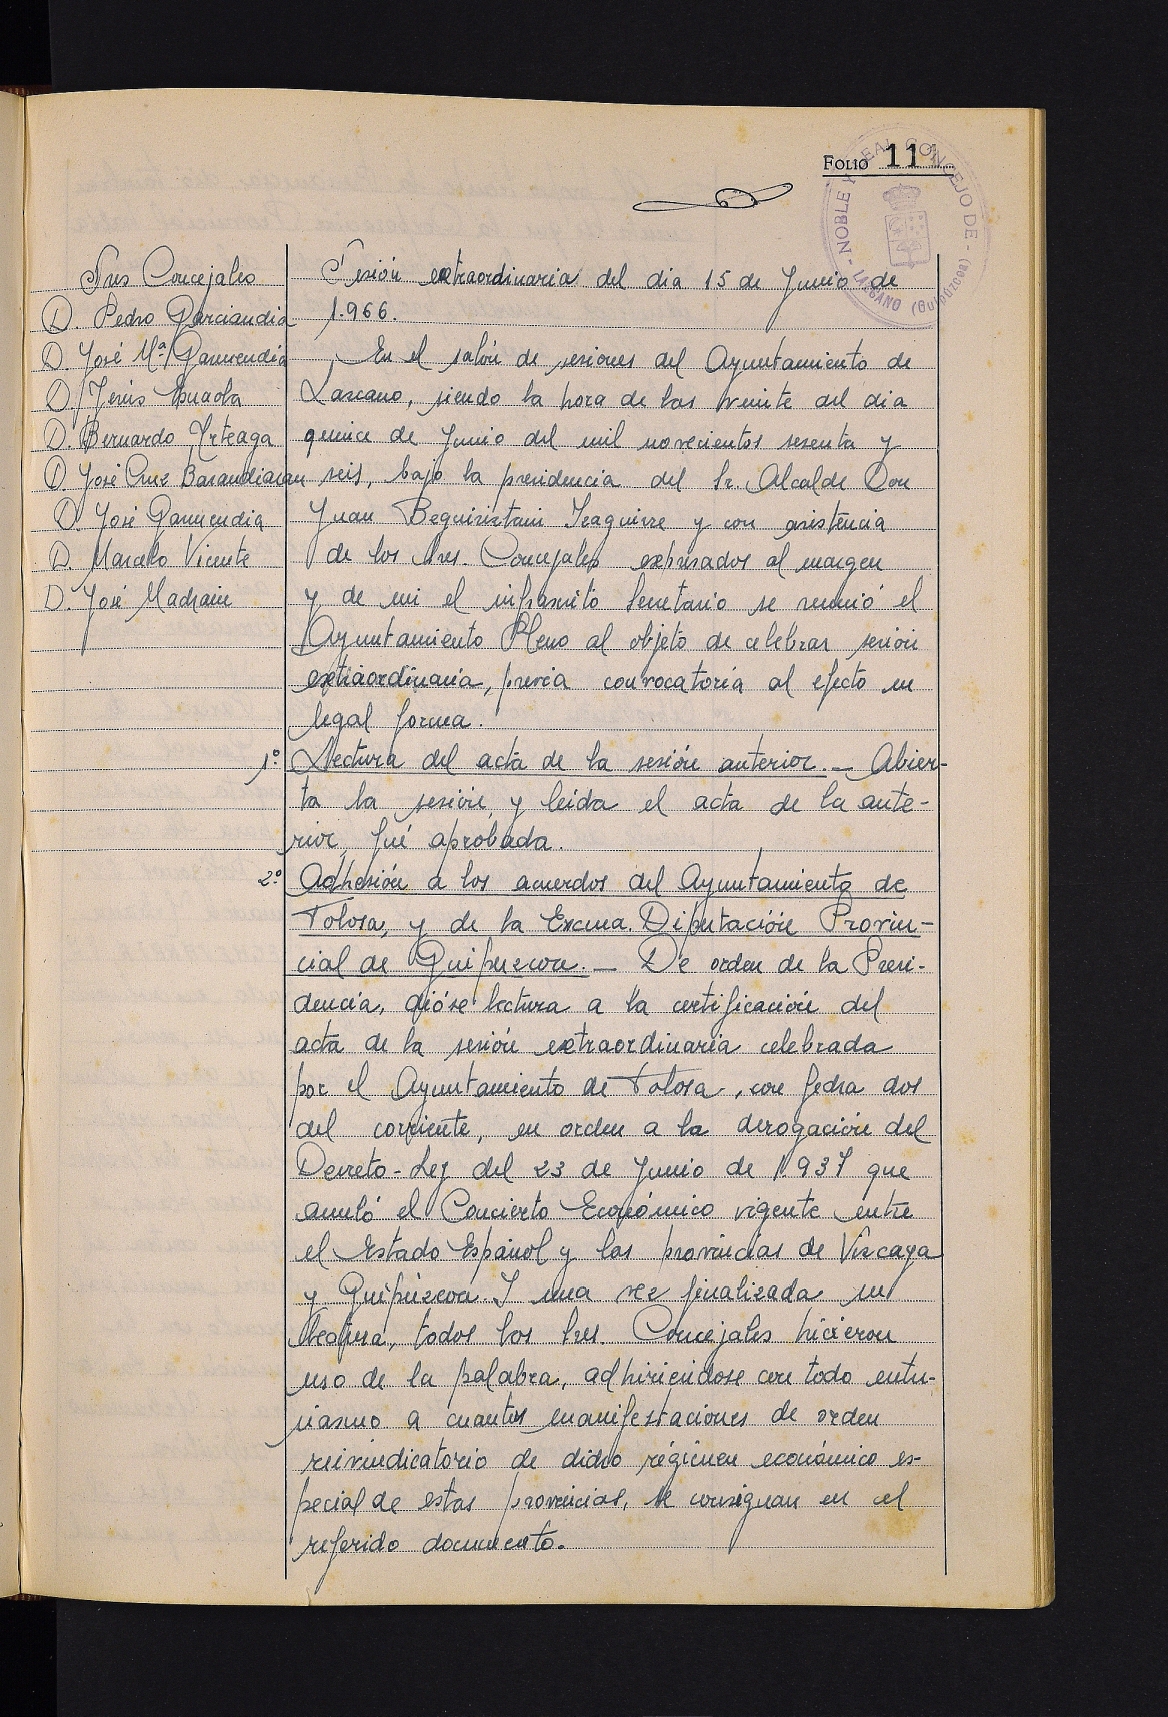 FOLIO 11
NOBLE Y REAL CONCEJO DE LAZCANO (Guipúzcoa)
Sres Concejales
D. Pedro Garciandia
D. José Mª Garmendia
D. Jesús
D. Bernardo Urteaga
D. José Cruz Barandiaran
D. José Garmendia
D. Marcelo Vicente
D. José
Sesión extraordinaria del dia 15 de Junio de
1.966.
En el salón de sesiones del Ayuntamiento de
Lazcano, siendo la hora de las veinte del dia
quince de Junio del mil novecientos sesenta y
seis, bajo la presidencia del Sr. Alcalde Don
Juan Beguiristain Izaguirre y con asistencia
de los Sres. Concejales expresados al margen
y de mi el infrascrito Secretario se reunió el
Ayuntamiento Pleno al objeto de celebrar sesión
extraordinaria, previa convocatoria al efecto en
legal forma.
1º Lectura del acta de la sesión anterior. — Abier-
ta la sesión, y leida el acta de la ante-
rior, fué aprobada.
2º Adhesión a los acuerdos del Ayuntamiento de
Tolosa, y de la Excma. Diputación Provin-
cial de Guipuzcoa. — De orden de la Presi-
dencia, dióse lectura a la certificación del
acta de la sesión extraordinaria celebrada
por el Ayuntamiento de Tolosa, con fecha dos
del corriente, en orden a la derogación del
Decreto-Ley del 23 de Junio de 1.937 que
anuló el Concierto Económico vigente entre
el Estado Español y las provincias de Vizcaya
y Guipúzcoa. Y una vez finalizada su
lectura, todos los Sres. Concejales hicieron
uso de la palabra, adhiriendose con todo entu-
siasmo a cuantas manifestaciones de orden
reivindicatorio de dicho régimen económico es-
pecial de estas provincias, se consignan en el
referido documento.